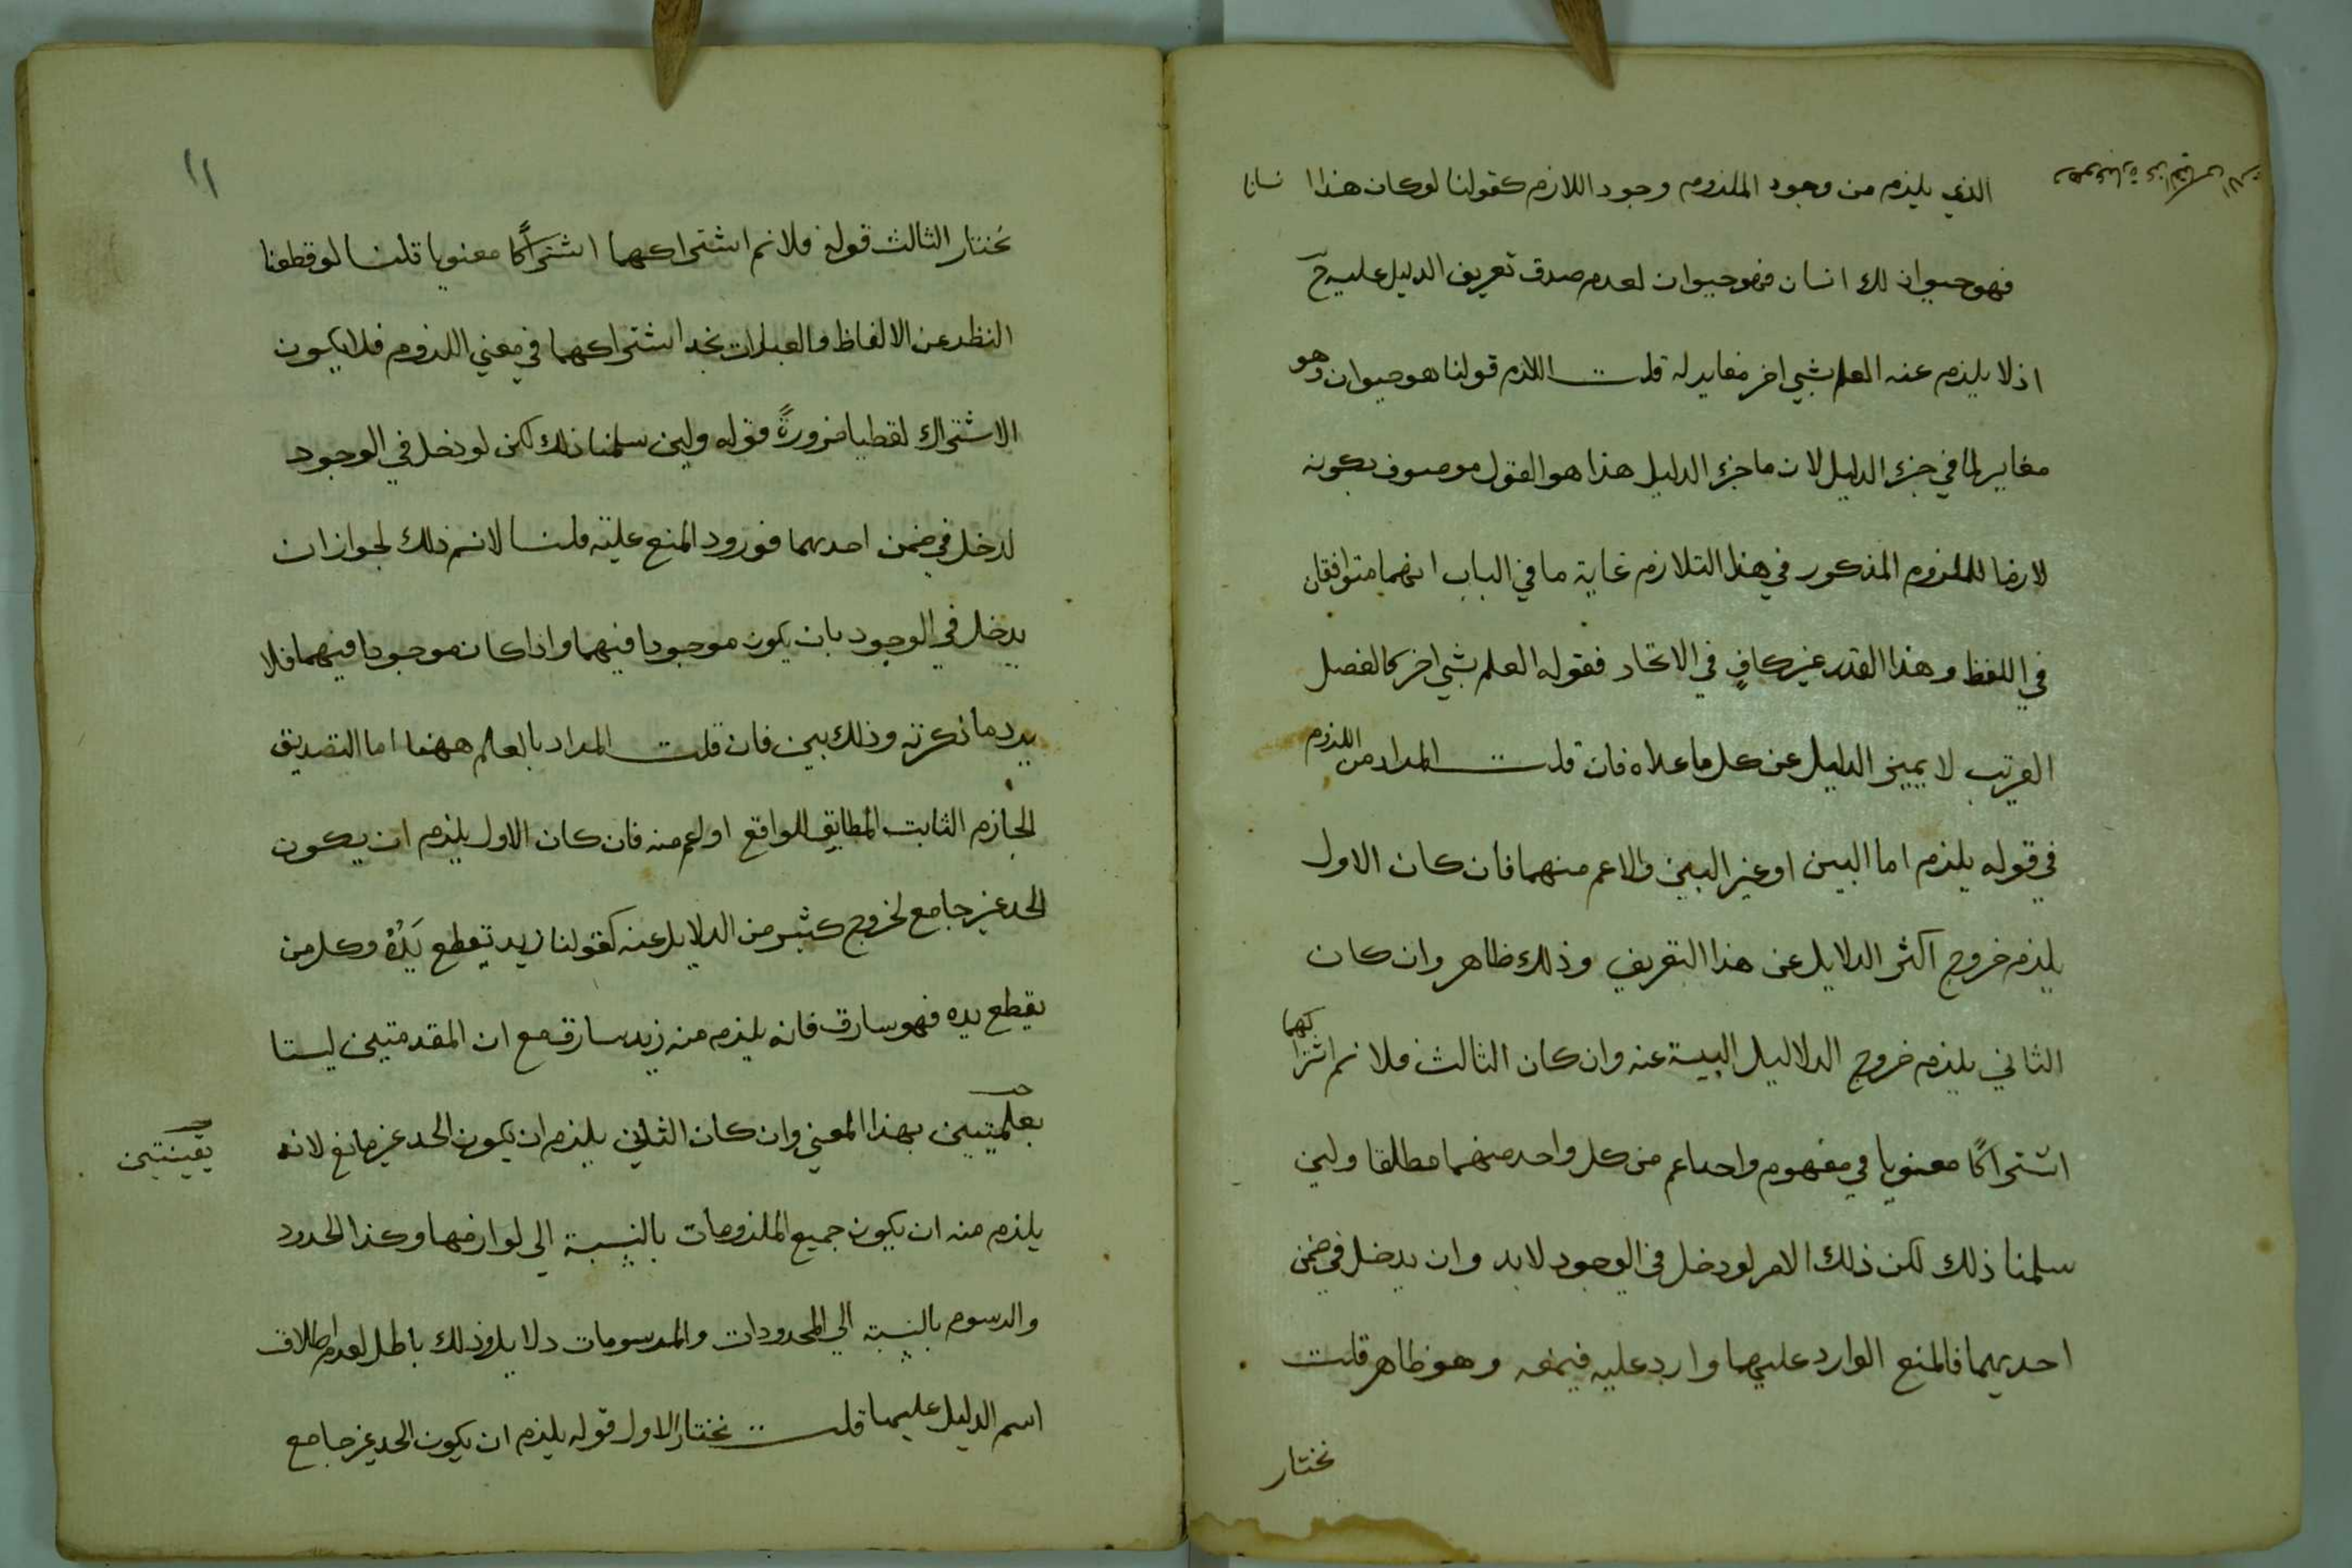 الذي يلزم من وجود الملزوم وجود اللازم كقولنا لو كان هذا انسانا
فهو حيوان لك انسان فهو حيوان لعدم صدق تعريف الدليل عليه ح
اذ لا يلزم عنه العلم بشي اخر مغاير له قلت اللازم قولنا هو حيوان وهو
مغاير لما في جزء الدليل لان ما جزء الدليل هذا هو القول موصوف بكونه
لازما للملزوم المذكور في هذا التلازم غاية ما في الباب انهما متوافقان
في اللفظ وهذا القدر غير كافٍ في الاتحاد فقوله العلم بشي اخر كالفصل
القريب لا يميز الدليل عن كل ما عداه فان قلت المراد من اللزوم
في قوله يلزم اما البين او غير البين والاعم منهما فان كان الاول
يلزم خروج اكثر الدلايل عن هذا التعريف وذلك ظاهر وان كان
الثاني يلزم خروج الدلاليل البينة عنه وان كان الثالث فلا نم اشتراكهما
اشتراكًا معنويا في مفهوم واحد اعم من كل واحد منهما مطلقا ولين
سلمنا ذلك لكن ذلك الامر لو دخل في الوجود لابد وان يدخل في ضمن
احديهما فالمنع الوارد عليهما وارد عليه فيمنعه وهو ظاهر قلت
نختار
١١
نختار الثالث قوله فلا نم اشتراكهما اشتراكًا معنويا قلنا لو قطعنا
النظر عن الالفاظ والعبارات نجد اشتراكهما في معني اللزوم فلا يكون
الاشتراك لفظيا ضرورةً قوله ولين سلمنا ذلك لكن لو دخل في الوجود
لدخل في ضمن احديهما فورود المنع عليه قلنا لا نسم ذلك لجواز ان
يدخل في الوجود بان يكون موجودا فيهما واذا كان موجودا فيهما فلا
يرد ما ذكرته وذلك بين فان قلت المراد بالعلم ههنا اما التصديق
الجازم الثابت المطابق للواقع او اعم منه فان كان الاول يلزم ان يكون
الحد غير جامع لخروج كثير من الدلايل عنه كقولنا زيد تقطع يَدُهُ وكل من
يقطع يده فهو سارق فانه يلزم منه زيد سارق مع ان المقدمتين ليستا
بعلميتين بهذا المعني وان كان الثاني يلزم ان يكون الحد غير مانع لانه
يقينيتين
يلزم منه ان يكون جميع الملزومات بالنسبة الي لوازمها وكذا الحدود
والرسوم بالنسبة الي المحدودات والمرسومات دلايل وذلك باطل لعدم اطلاق
اسم الدليل عليهما قلت نختار الاول قوله يلزم ان يكون الحد غير جامع